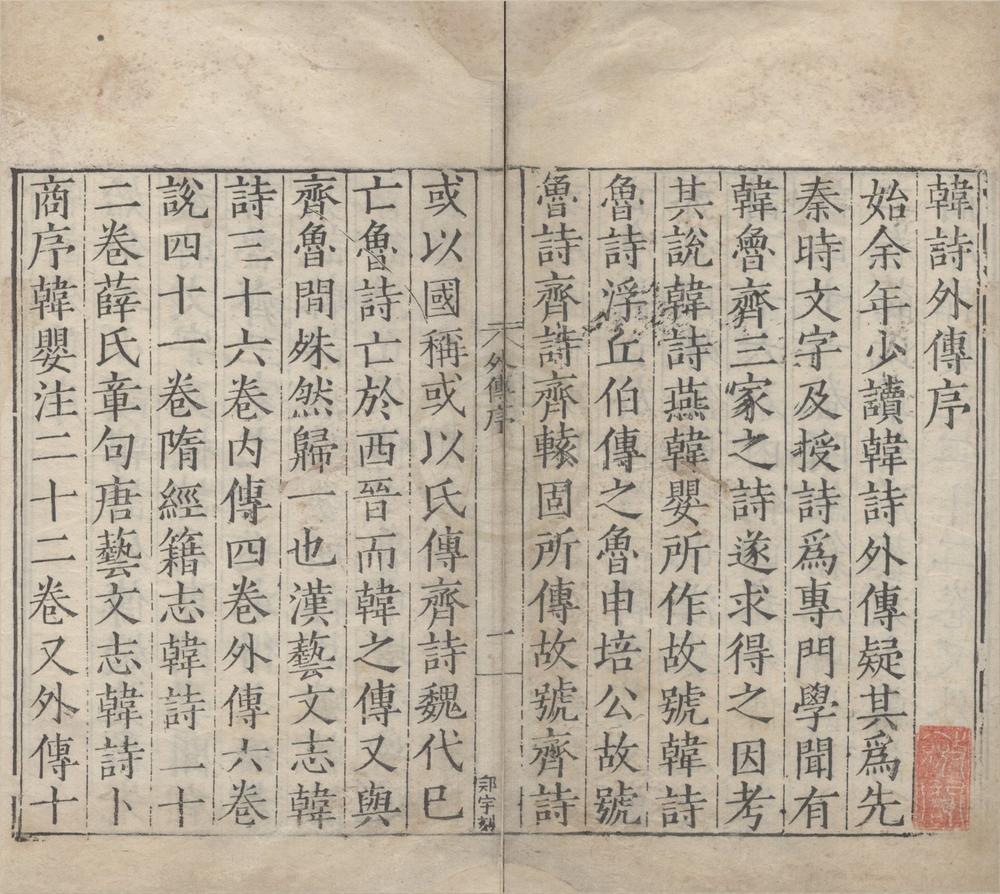 韓詩外傳序
始余年少讀韓詩外傳疑其爲先
秦時文字及授詩爲專門學聞有
韓魯齊三家之詩遂求得之因考
其說韓詩燕韓嬰所作故號韓詩
魯詩浮丘伯傳之魯申培公故號
魯詩齊詩齊轅固所傳故號齊詩
外傳序
一
郑宇刻
或以國稱或以氏傳齊詩魏代巳
亡魯詩亡於西晉而韓之傳又與
齊魯間殊然歸一也漢藝文志韓
詩三十六卷内傳四卷外傳六卷
說四十一卷隋經籍志韓詩二十
二卷薛氏章句唐藝文志韓詩卜
商序韓嬰注二十二卷又外傳十